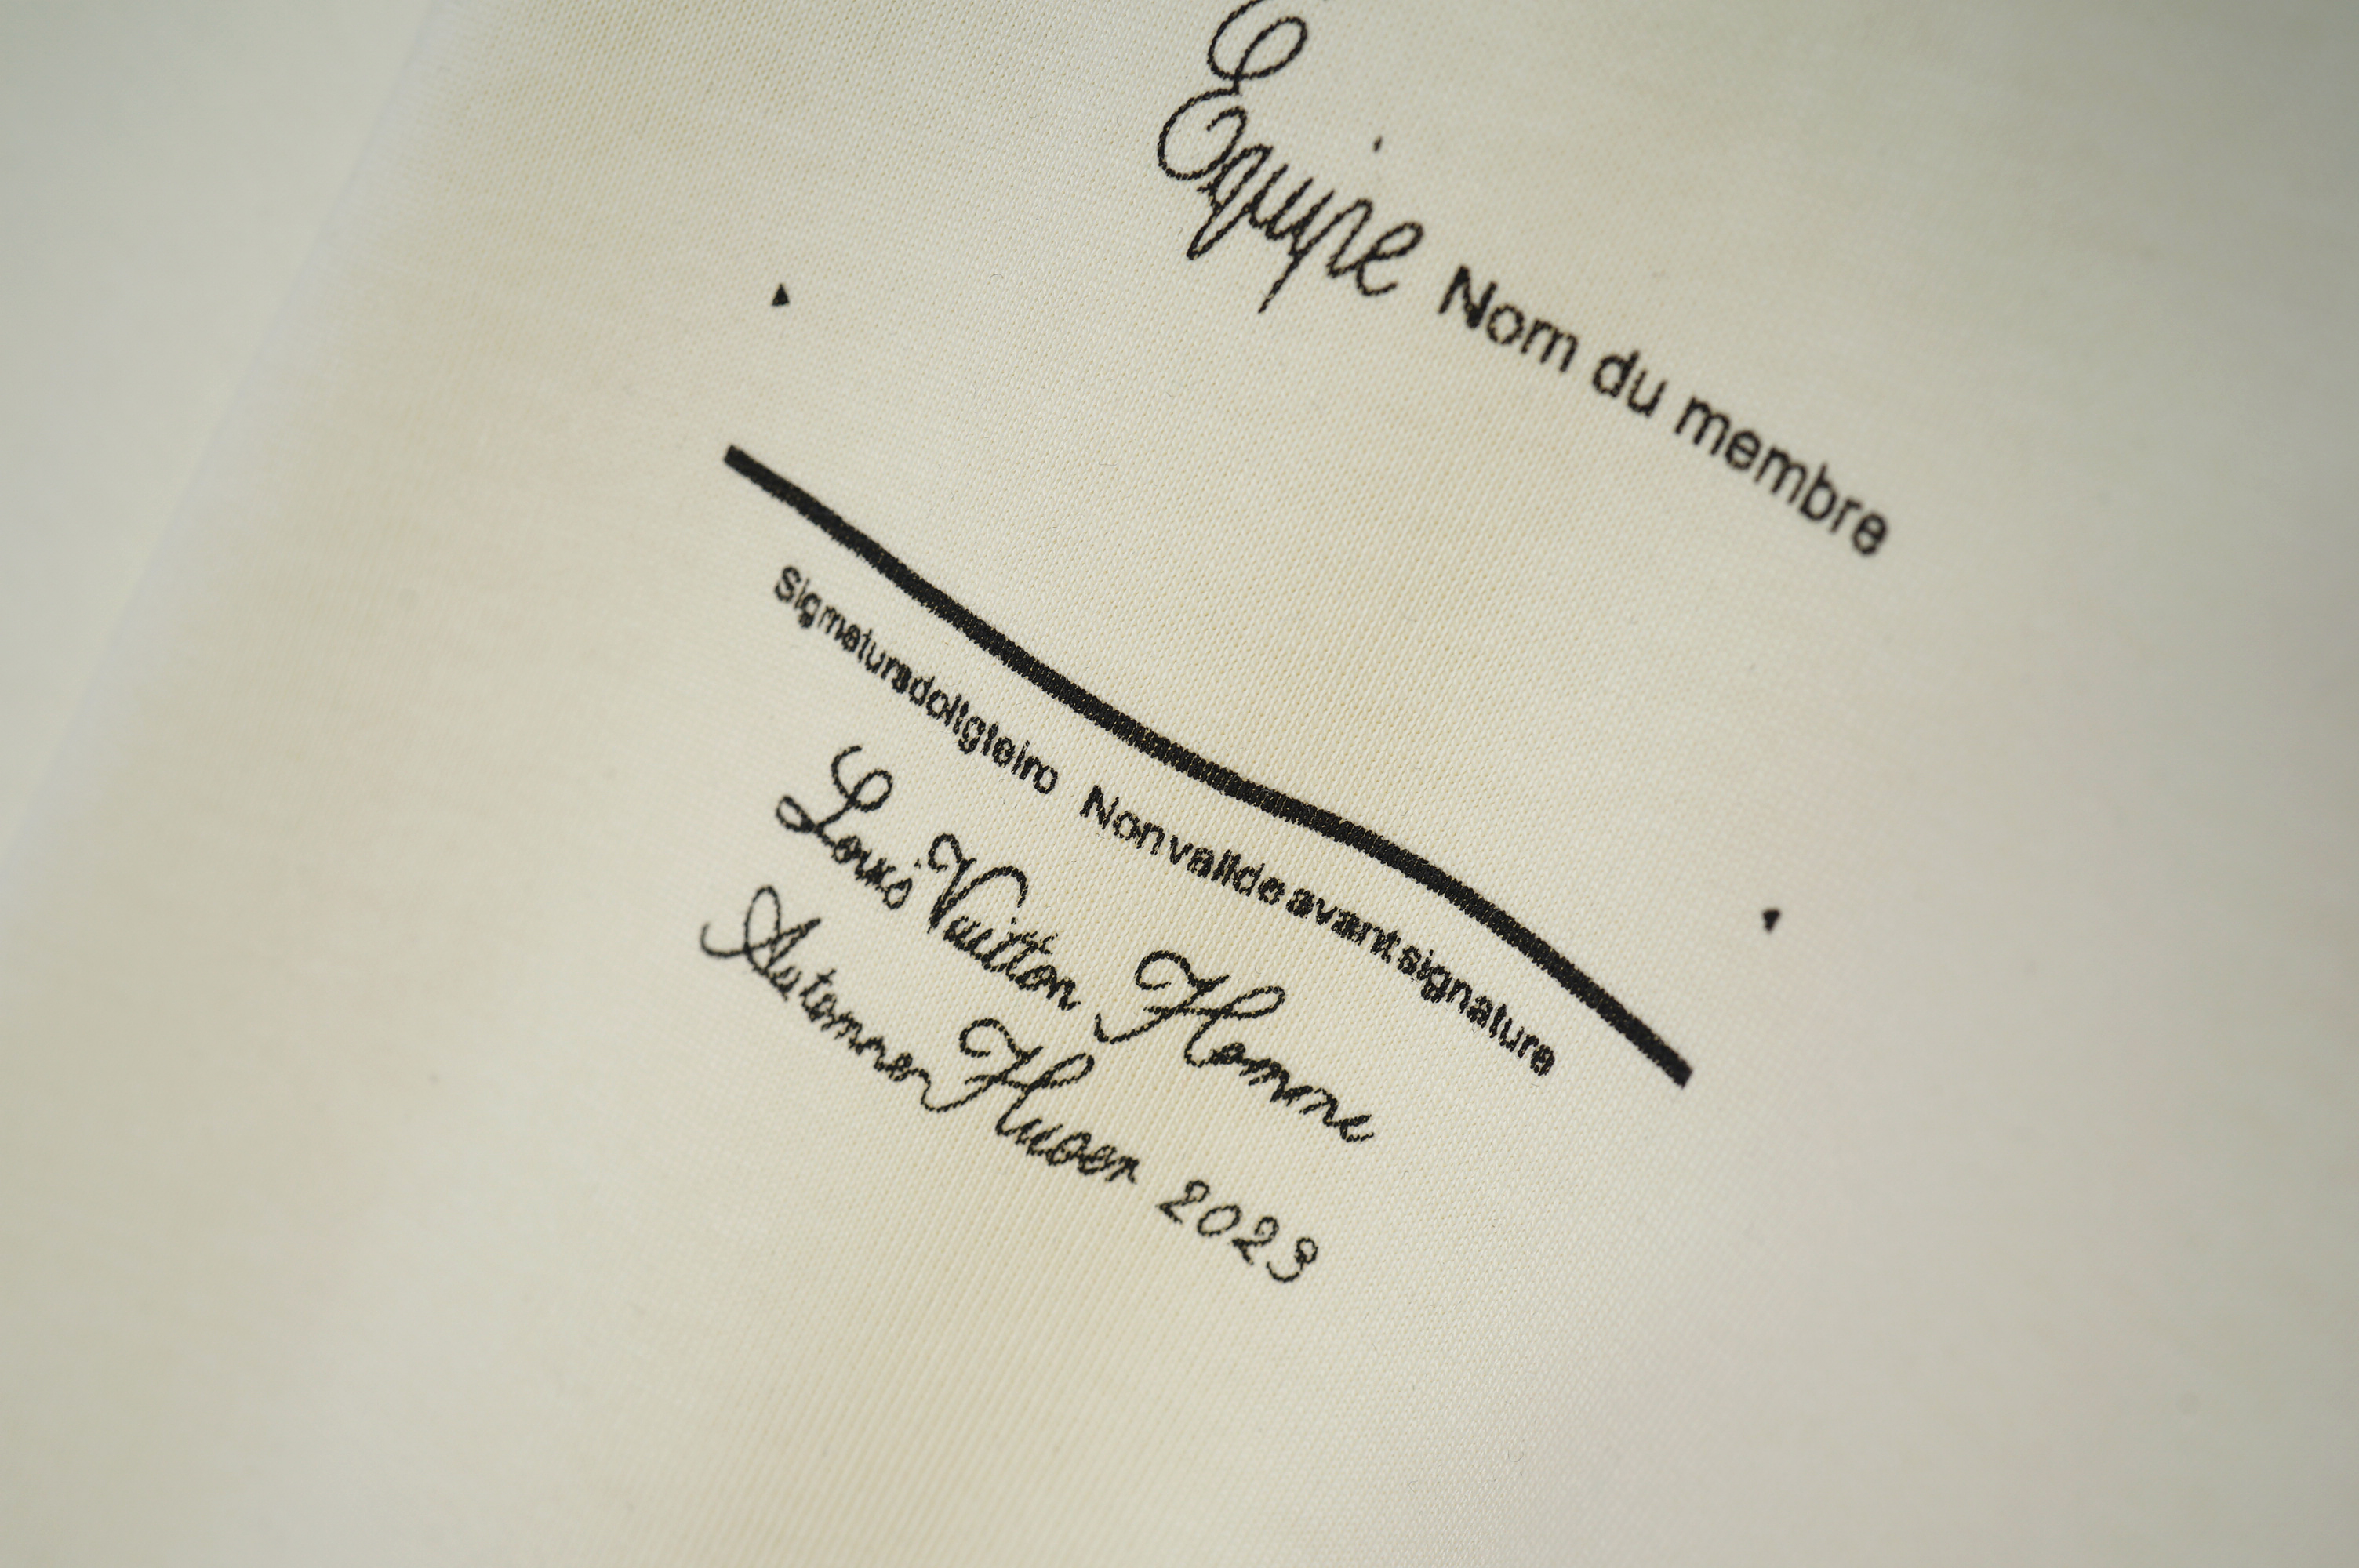 Equipe Nom du membre
Signaturadoltgteiro Nonvalideavantsignature
Louis Vuitton Homme
Automne Hiver 2023